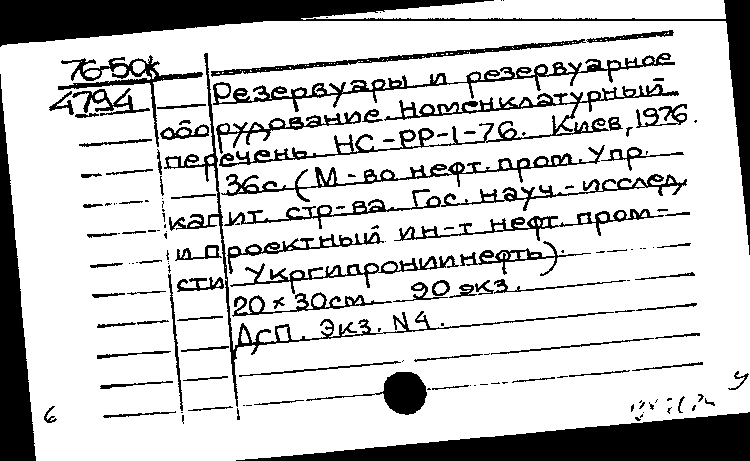 76-50к
4794
Резервуары и резервуарное
оборудование. Номенклатурный
перечень. НС-РР-1-76. Киев, 1976.
36с. (М-во нефт. пром. Упр.
капит. стр-ва. Гос. науч.-исслед.
и проектный ин-т нефт. пром-
сти Укргипрониинефть).
20 × 30см. 90 экз.
ДСП. Экз. N4.
6